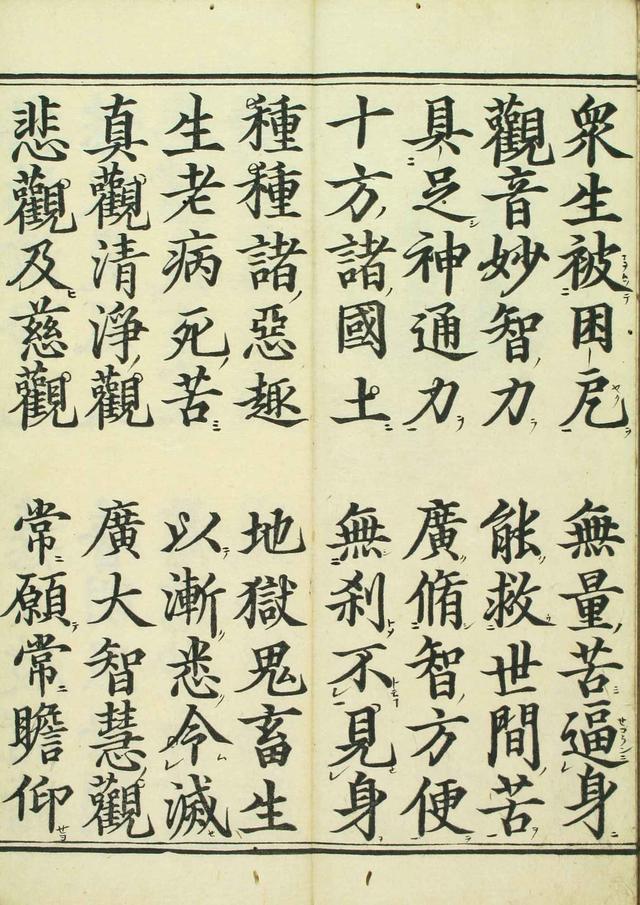 衆生被困戹　無量苦逼身
觀音妙智力　能救世間苦
具足神通力　廣脩智方便
十方諸國土　無刹不見身
種種諸惡趣　地獄鬼畜生
生老病死苦　以漸悉令滅
真觀清淨觀　廣大智慧觀
悲觀及慈觀　常願常瞻仰